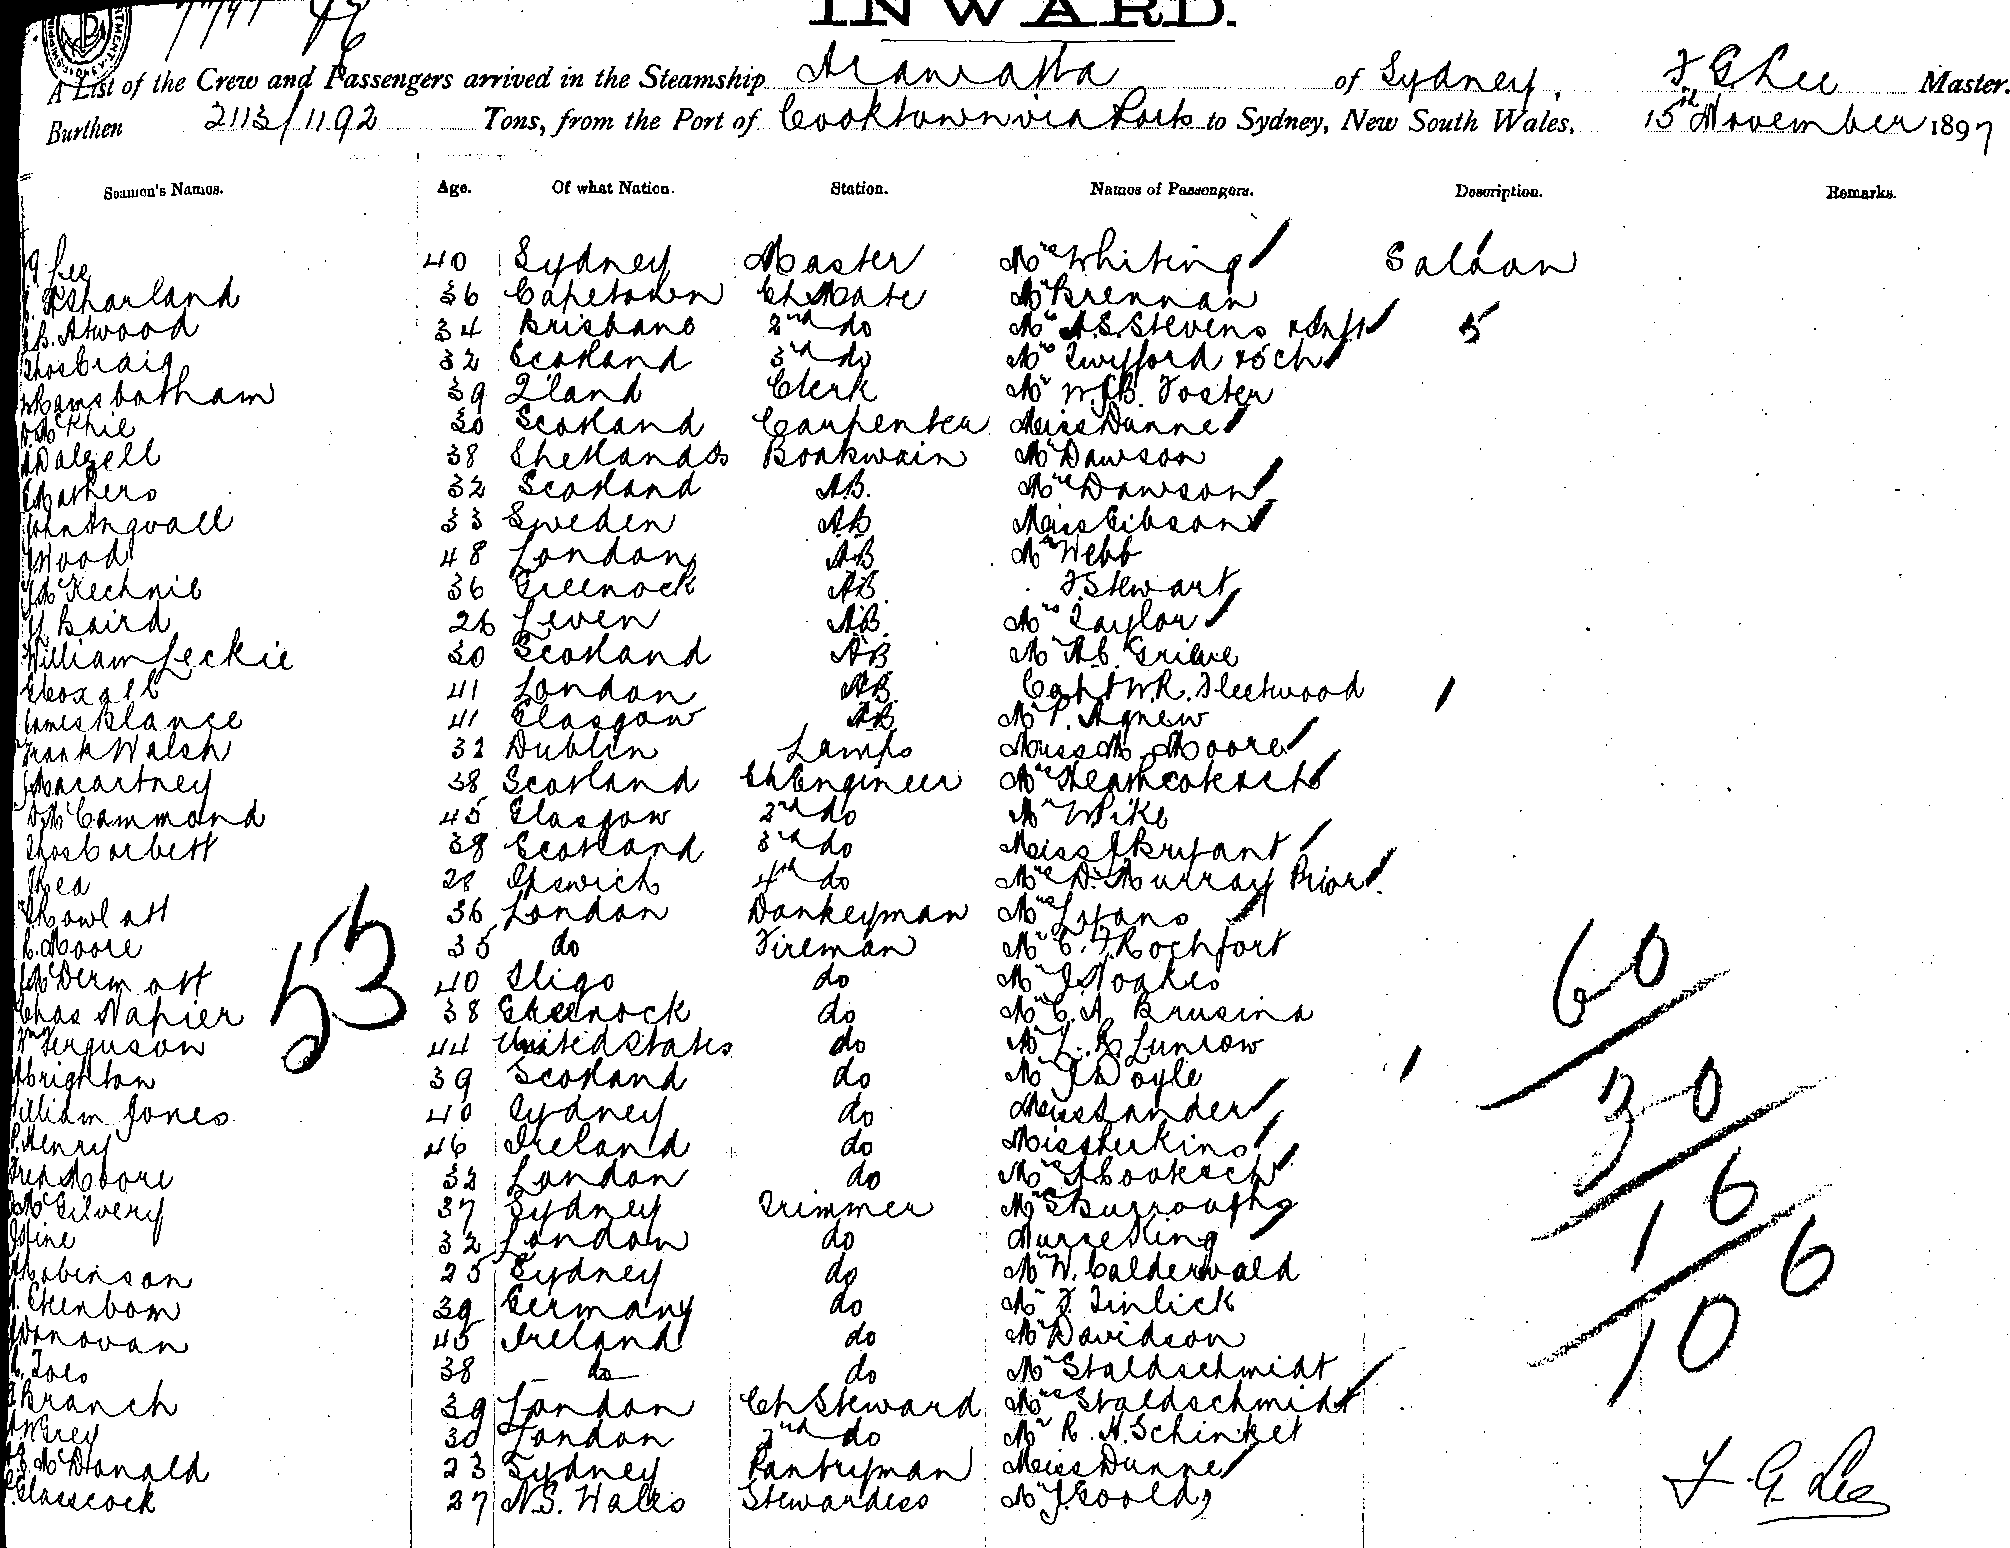 INWARD.
A List of the Crew and Passengers arrived in the Steamship Aramatta of Sydney, F G Lee Master.
Burthen 2113/1192 Tons, from the Port of Cooktown via Ports to Sydney, New South Wales, 15th November 1897
Seamen's Names. Age. Of what Nation. Station. Names of Passengers. Description. Remarks.
Lee 40 Sydney Master Mrs Whiting Saloon
36 Capetown Ch Mate Mr Brennan
Atwood 34 Brisbane 2nd do Mrs A.S. Stevens & Inft 5
Thos Craig 32 Scotland 3rd do Mrs Twyfford & 5 ch
Ramsbotham 39 Q'land Clerk Mr W.B. Foster
McPhie 30 Scotland Carpenter Miss Dunne
Dalzell 38 Shetlands Boatswain Mr Dawson
Mathers 32 Scotland A.B. Mrs Dawson
John Angvall 33 Sweden AB Miss Gibson
Wood 48 London AB Mr Webb
McKechnie 36 Greenock AB F. Stewart
Baird 26 Leven AB Mrs Taylor
William Leckie 30 Scotland AB Mr A.C. Grieve
41 London AB Capt W.R. Fleetwood
James Blance 41 Glasgow AB Mr P. Agnew
Frank Walsh 32 Dublin Lamps Miss M. Moore
Macartney 38 Scotland Ch Engineer Mrs Heathcote & ch
McCammond 45 Glasgow 2nd do Mr Wike
Thos Corbett 38 Scotland 3rd do Miss Bryant
Shea 28 Ipswich 4th do Mrs D. Murray Prior
Howlatt 36 London Donkeyman Mrs Lyans
Moore 35 do Fireman Mr C. F. Rochfort
McDermott 40 Sligo do Mr J Noakes
Chas Napier 38 Greenock do Mr C.A. Brusina
53
60
Wm Ferguson 44 United States do Mr L. R. Lumow
Abrighton 39 Scotland do Mr J Doyle
30
William Jones 40 Sydney do Miss Lander
P. Henry 46 Ireland do Miss Perkins
Fred Moore 32 London do Mrs Cook & ch
16
McGilvery 37 Sydney Trimmer Mr S Burroughs
Hine 32 London do Nurse King
6
Robinson 25 Sydney do Mr W. Calderwald
Steenbom 39 Germany do Mr F. Finlick
10
Donovan 45 Ireland do Mr Davidson
Toes 38 do do Mr Staldschmidt
Branch 39 London Ch Steward Mrs Staldschmidt
Grey 30 London 2nd do Mr R. H. Schinkel
McDonald 23 Sydney Pantryman Miss Dunne
Glasscock 27 N.S. Wales Stewardess Mr J. Goold
F. G. Lee